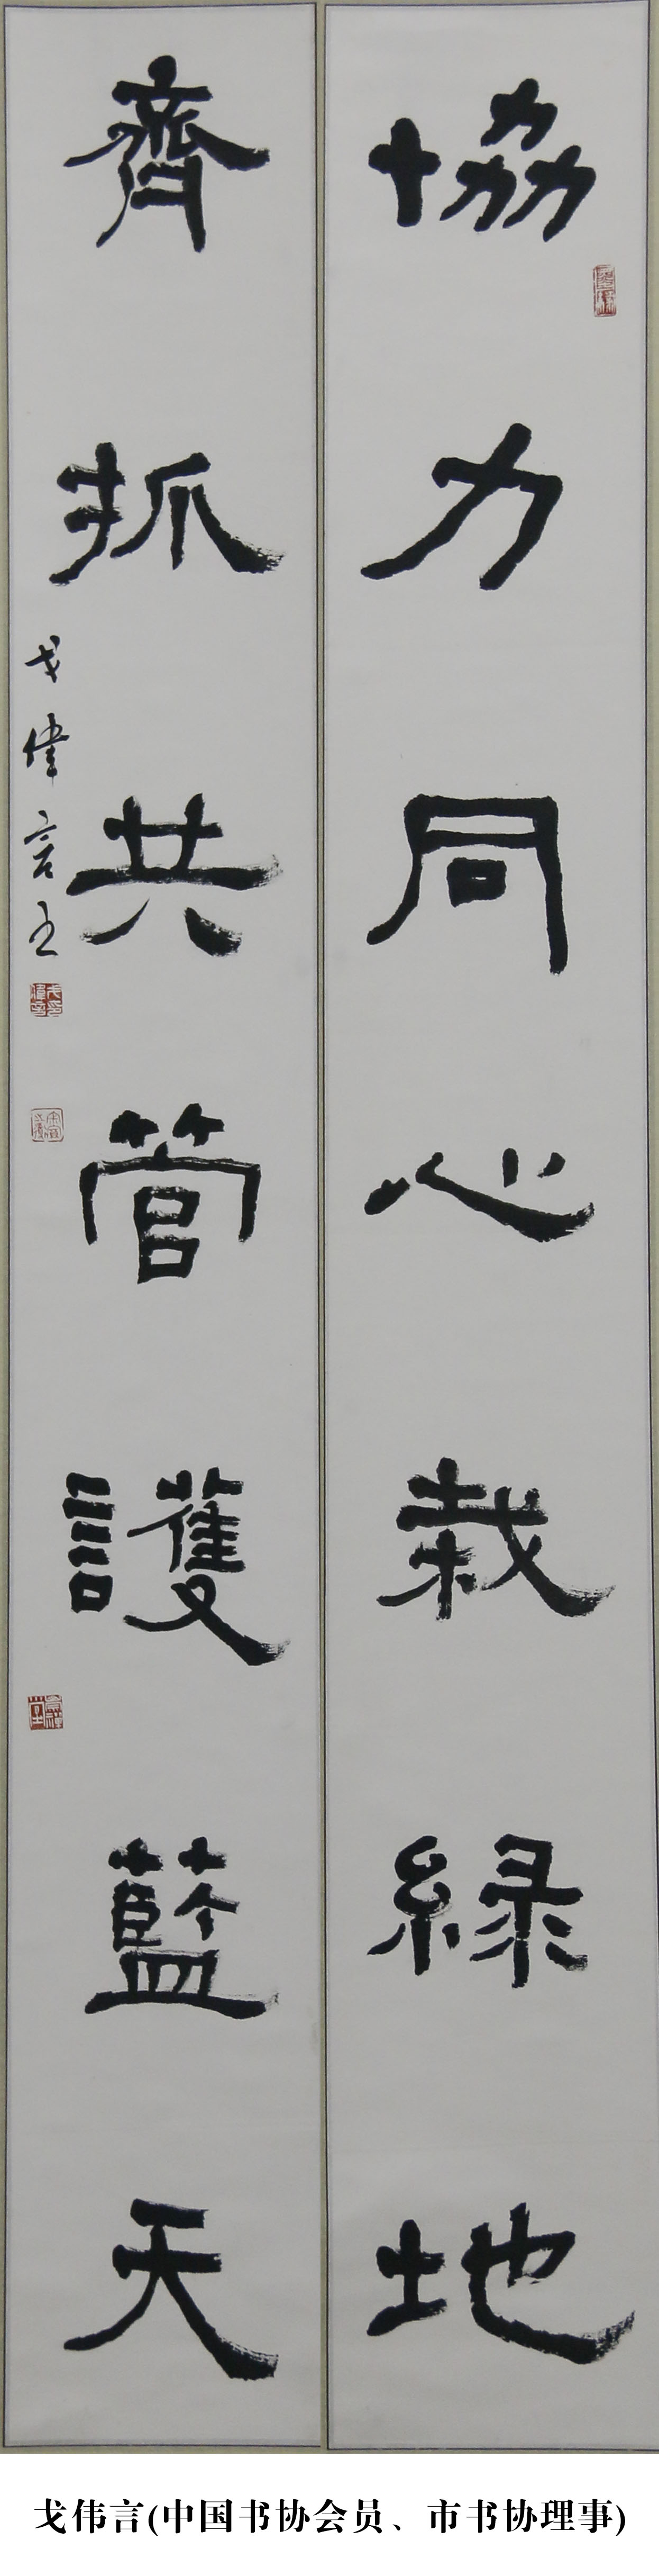 協力同心栽緑地
齊抓共管護藍天
戈偉言
戈伟言(中国书协会员、市书协理事)